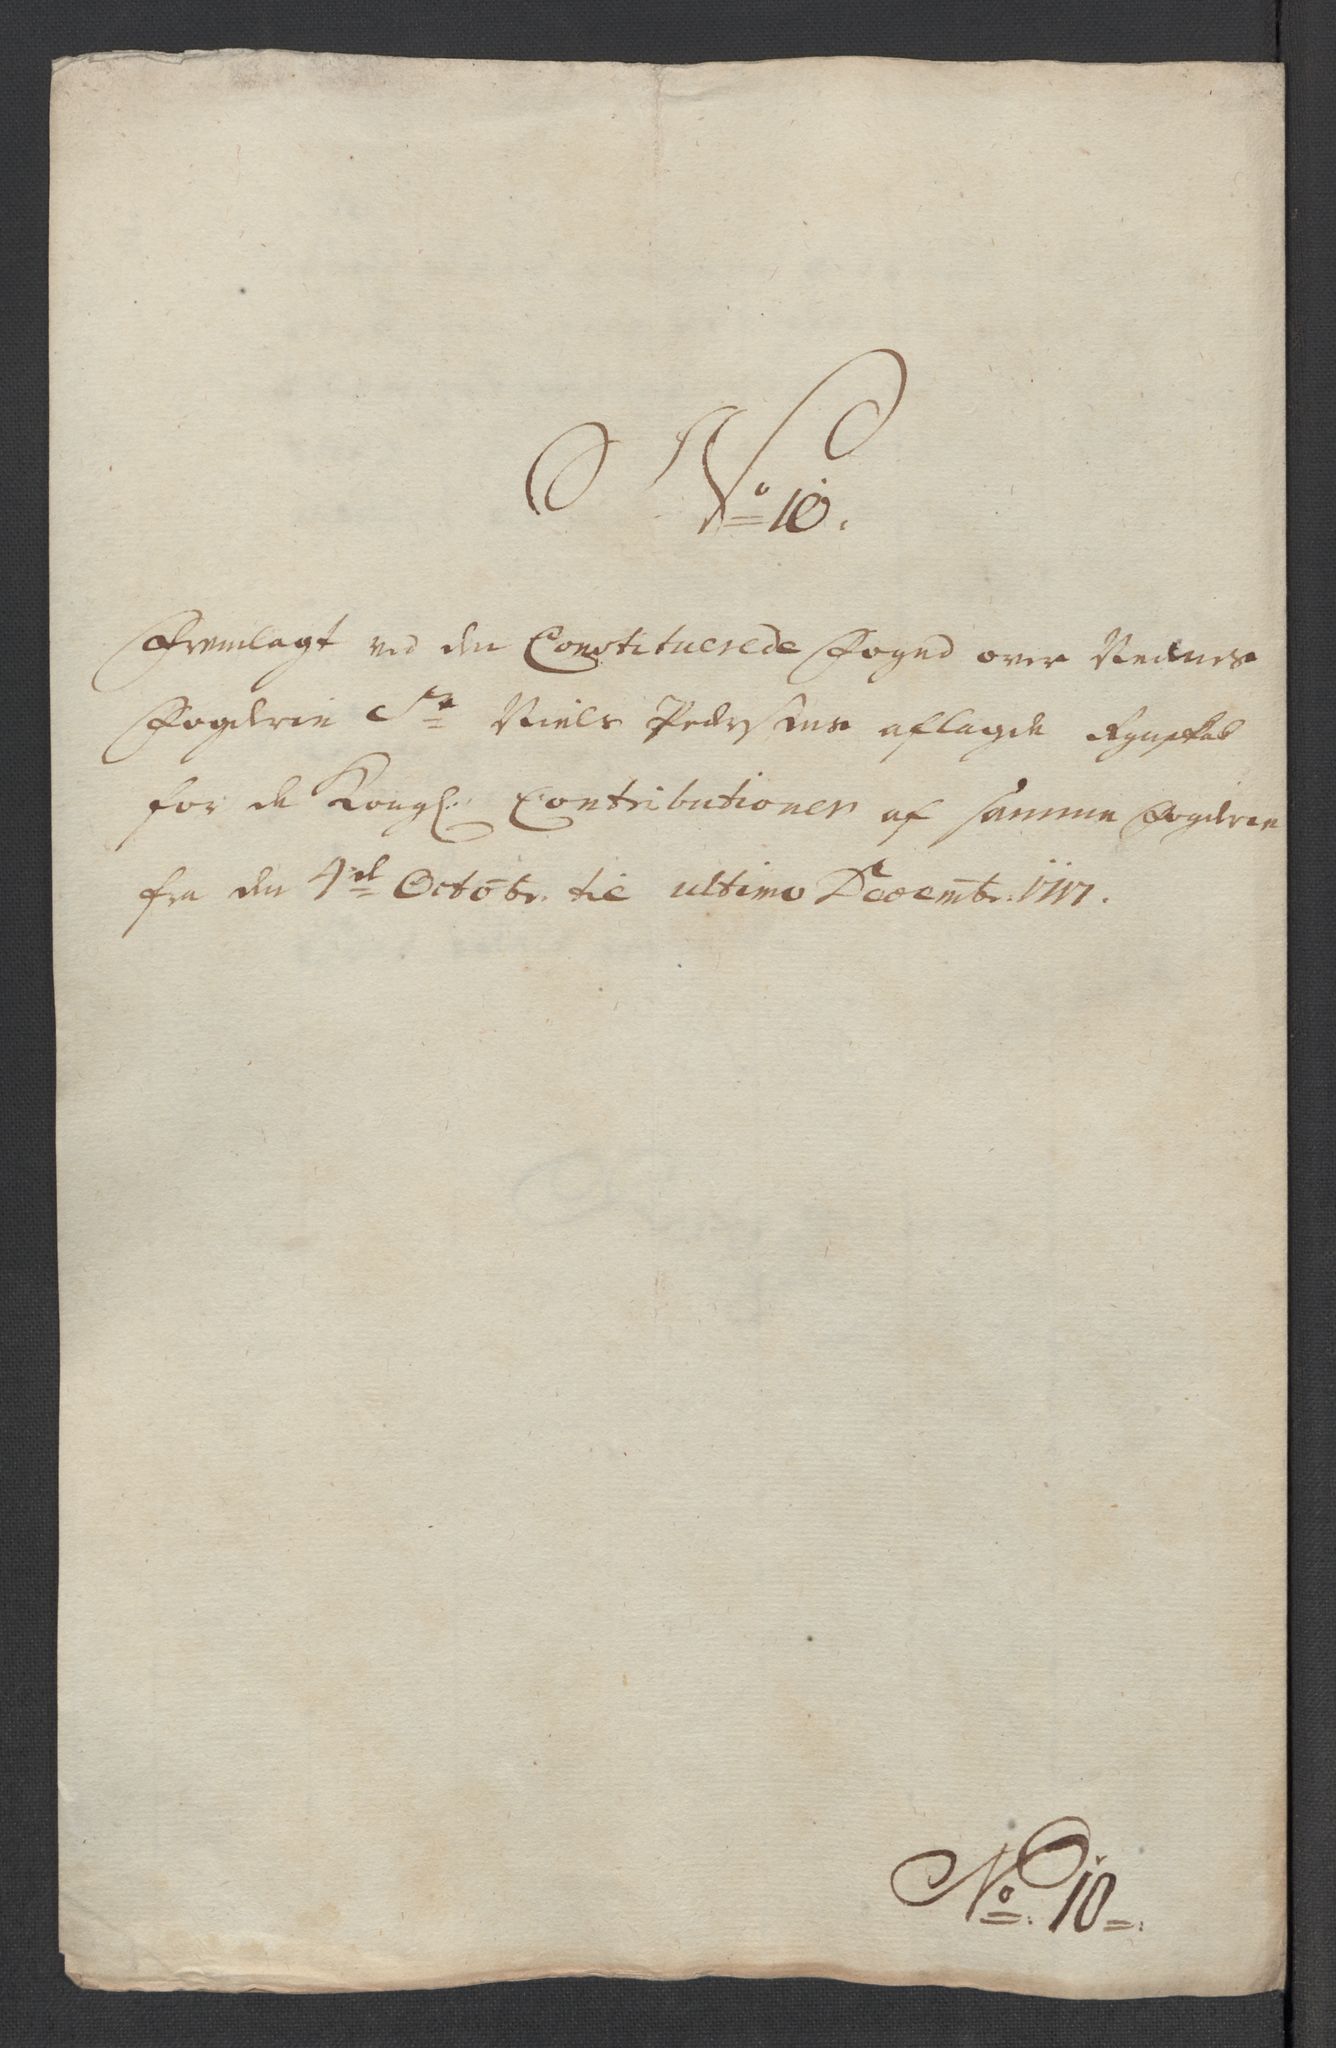 No 10.
Fremlagt ved den Constituerede Foged over Nednes
Fogderie Sr Niels Pedersens aflagde Regnskab
for de Kongl: Contributioner af samme Fogderie
fra den 4de Octobr. til ultimo Decembr. 1717.
No. 10